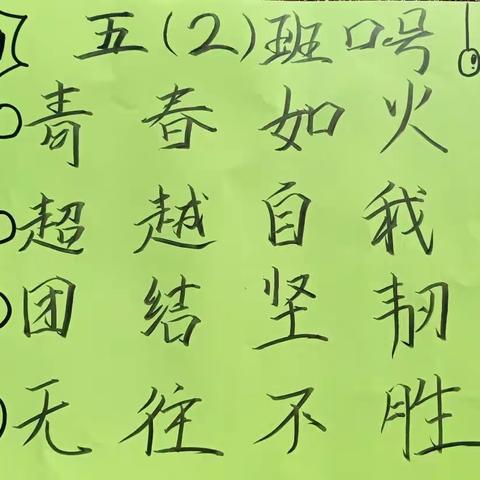 五(2)班口号
青春如火
超越自我
团结坚韧
无往不胜